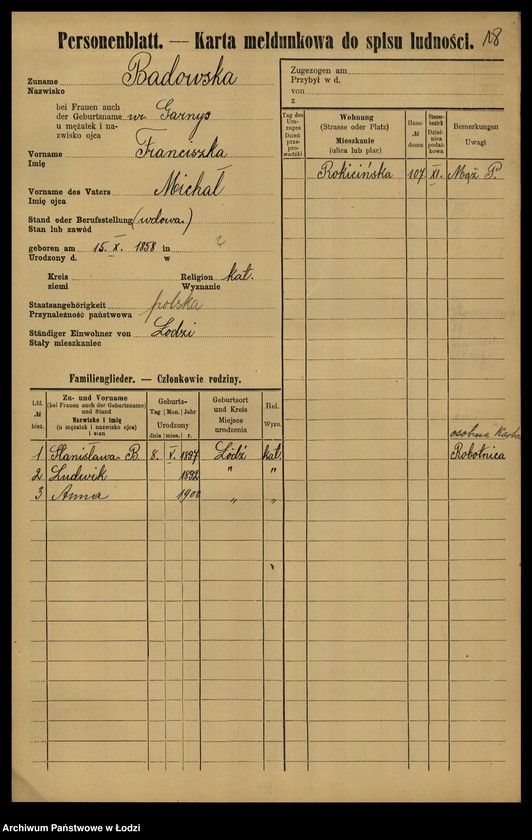 Personenblatt. — Karta meldunkowa do spisu ludności. 18
Zuname Badowska
Nazwisko
bei Frauen auch
der Geburtsname ur. Garnys
u mężatek i na-
zwisko ojca
Vorname Franciszka
Imię
Vorname des Vaters Michał
Imię ojca
Stand oder Berufsstellung (wdowa)
Stan lub zawód
geboren am 15. X. 1858 in
Urodzony d. w
Kreis Religion kat.
ziemi Wyznanie
Staatsangehörigkeit polska
Przynależność państwowa
Ständiger Einwohner von Łodzi
Stały mieszkaniec
Zugezogen am
Przybył w d.
von
z
Tag des Um-zuges Dzień prze-prowadzki
Wohnung (Strasse oder Platz) Mieszkanie (ulica lub plac)
Haus- № domu
Steuer-bezirk Dziel-nica podat-kowa
Bemerkungen Uwagi
Rokicińska 107 XI. Mąż P.
Familienglieder. — Członkowie rodziny.
Lfd. № bież.
Zu- und Vorname (bei Frauen auch der Geburtsname) und Stand Nazwisko i imię (u mężatek i nazwisko ojca) i stan
Geburts- Tag Mon. Jahr Urodzony dnia mies. r.
Geburtsort und Kreis Miejsce urodzenia
Rel. Wyzn.
osobna karta
1 Stanisława B. 8. V. 1897 Łódź kat. Robotnica
2 Ludwik 1892 " "
3 Anna 1900 " "
Archiwum Państwowe w Łodzi